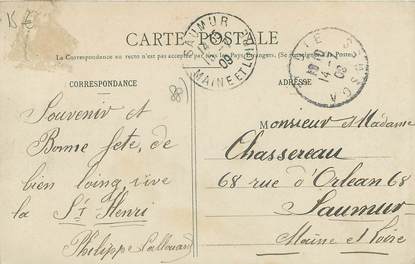 CARTE POSTALE
La Correspondance au recto n'est pas acceptée par tous les Pays Étrangers. (Se renseigner à la Poste).
CORRESPONDANCE
ADRESSE
SAUMUR
MAINE ET LOIRE
09
Souvenir et
Bonne fête, de
bien loing, vive
la St Henri
Philippe Lallouard
Monsieur et Madame
Chassereau
68 rue d'Orlean 68
Saumur
Maine et Loire